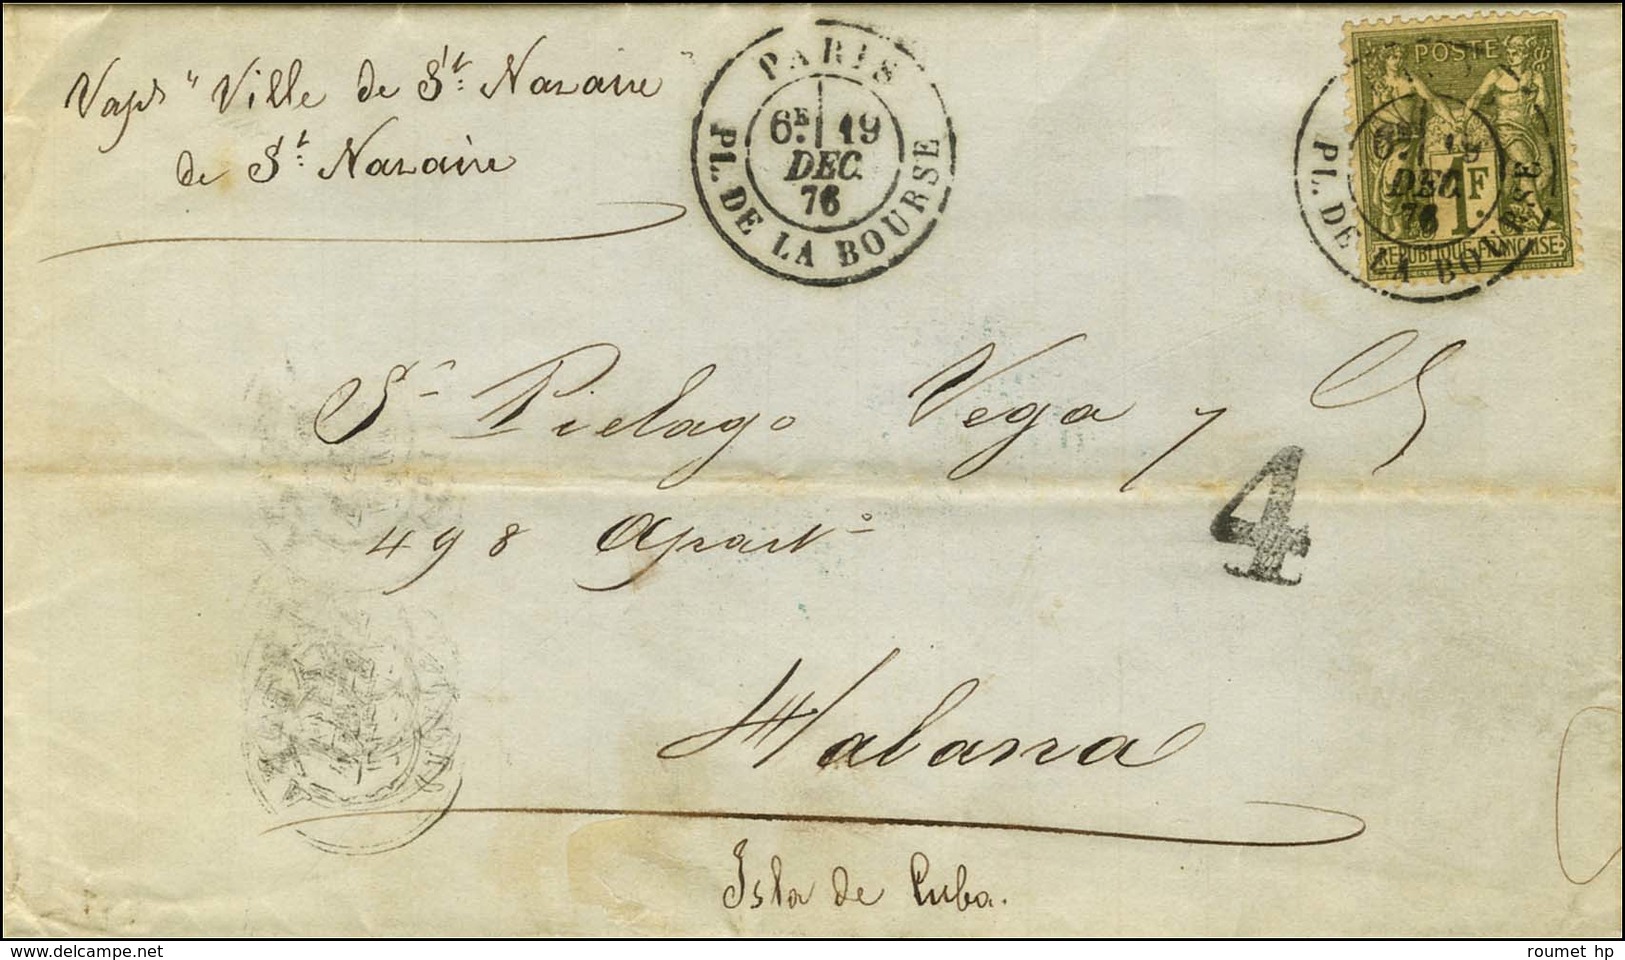 Vapr "Ville de St. Nazaire"
de St. Nazaire
PARIS
6E. 19
DEC.
76
PL. DE LA BOURSE
POSTE
6E. 19
DEC.
76
1F.
PL. DE LA BOURSE
REPUBLIQUE FRANCAISE
Sn Pielago Vega y C
4
498 Apart°
Habana
Isla de Cuba.
www.delcampe.net
roumet hp